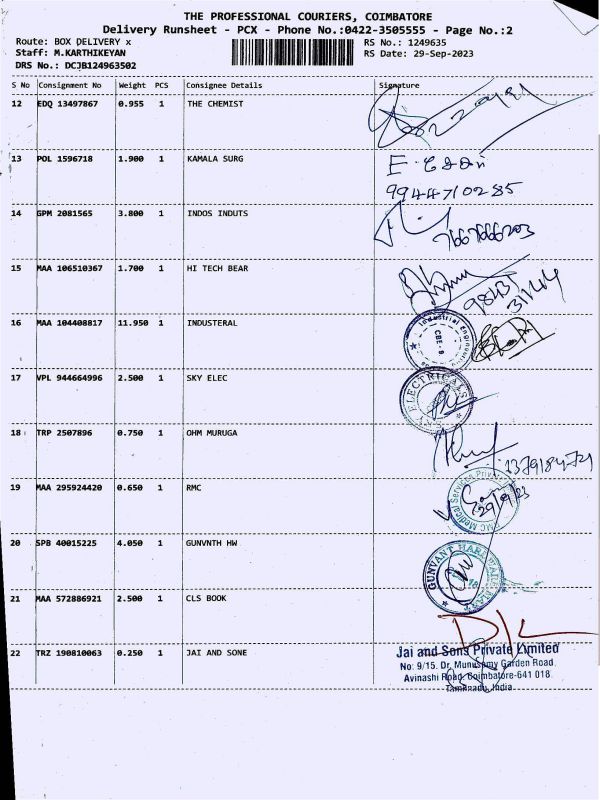 THE PROFESSIONAL COURIERS, COIMBATORE
Delivery Runsheet - PCX - Phone No.:0422-3505555 - Page No.:2
Route: BOX DELIVERY x RS No.: 1249635
Staff: M.KARTHIKEYAN RS Date: 29-Sep-2023
DRS No.: DCJB124963502
S No Consignment No Weight PCS Consignee Details Signature
12 EDQ 13497867 0.955 1 THE CHEMIST
13 POL 1596718 1.900 1 KAMALA SURG
9944710285
14 GPM 2081565 3.800 1 INDOS INDUTS
15 MAA 106510367 1.700 1 HI TECH BEAR
16 MAA 104408817 11.950 1 INDUSTERAL
Industrial engineering
CBE - 9
17 VPL 944664996 2.500 1 SKY ELEC
SKY ELECTRICALS
18 TRP 2507896 0.750 1 OHM MURUGA
19 MAA 295924420 0.650 1 RMC
RMC Medical Services Private
29/9/23
20 SPB 40015225 4.050 1 GUNVNTH HW
GUNVANT HARDWARE MART
21 MAA 572886921 2.500 1 CLS BOOK
22 TRZ 190810063 0.250 1 JAI AND SONE
Jai and Sons Private Limited
No: 9/15, Dr. Munusamy Garden Road,
Avinashi Road, Coimbatore-641 018
Tamilnadu, India.